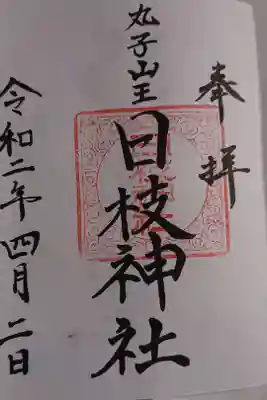 奉拝
丸子山王
日枝神社
令和二年四月二日